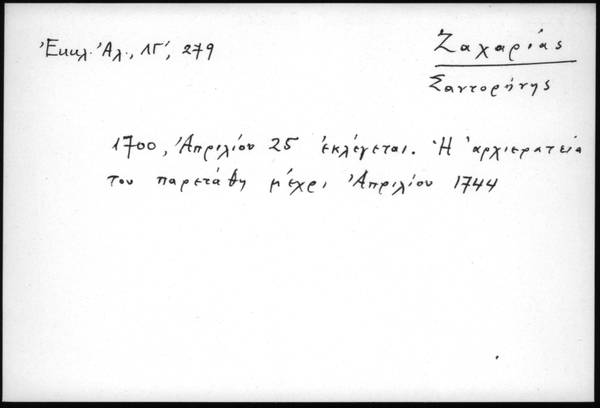 Ἐκκλ. Ἀλ., ΙΓ', 279
Ζαχαρίας
Σαντορήνης
1700, Ἀπριλίου 25 ἐκλέγεται. Ἡ ἀρχιερατεία
του παρετάθη μέχρι Ἀπριλίου 1744